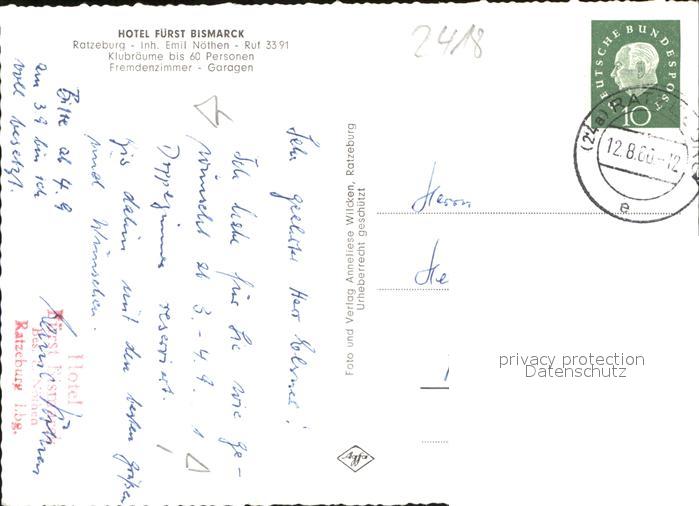 HOTEL FÜRST BISMARCK
Ratzeburg - Inh. Emil Nöthen - Ruf 3391
Klubräume bis 60 Personen
Fremdenzimmer - Garagen
2418
DEUTSCHE BUNDESPOST
10
(24a) RATZEBURG
12.8.60-12
e
Sehr geehrter Herr
Ich habe für Sie wie ge-
wünscht ab 3.-4.9. 1
Doppelzimmer reserviert.
Bis dahin mit den besten Grüßen
und Wünschen.
Bitte ab 4.9
am 3.9 bin ich
voll besetzt.
Hotel
Fürst Bismarck
Bes. E. Nöthen
Ratzeburg Lbg.
Foto und Verlag Anneliese Wilcken, Ratzeburg
Urheberrecht geschützt
Herrn
He
privacy protection
Datenschutz
Agfa